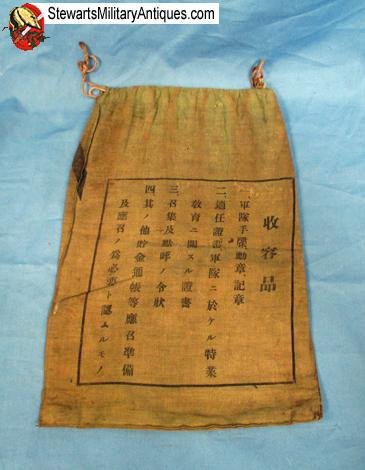 StewartsMilitaryAntiques.com
收容品
一、軍隊手牒、勳章、記章
二、適任證書、軍隊ニ於ケル特業
教育ニ關スル證書
三、召集及點呼ノ令狀
四、其ノ他貯金通帳等應召準備
及應召ノ爲必要ト認ムルモノ